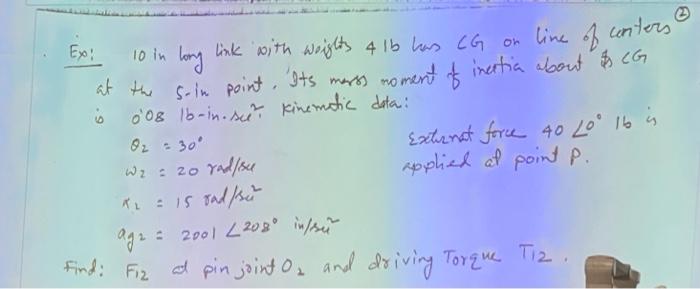 ②
Ex: 10 in long link with weights 4 lb has CG on line of centers
at the 5-in point. Its mass moment of inertia about CG
is 0.08 lb-in.sec². Kinematic data:
θ2 = 30°
External force 40 ∠0° lb is
ω2 = 20 rad/sec
applied at point P.
α2 = 15 rad/sec²
ag2 = 2001 ∠208° in/sec²
Find: F12 at pin joint O2 and driving Torque T12.